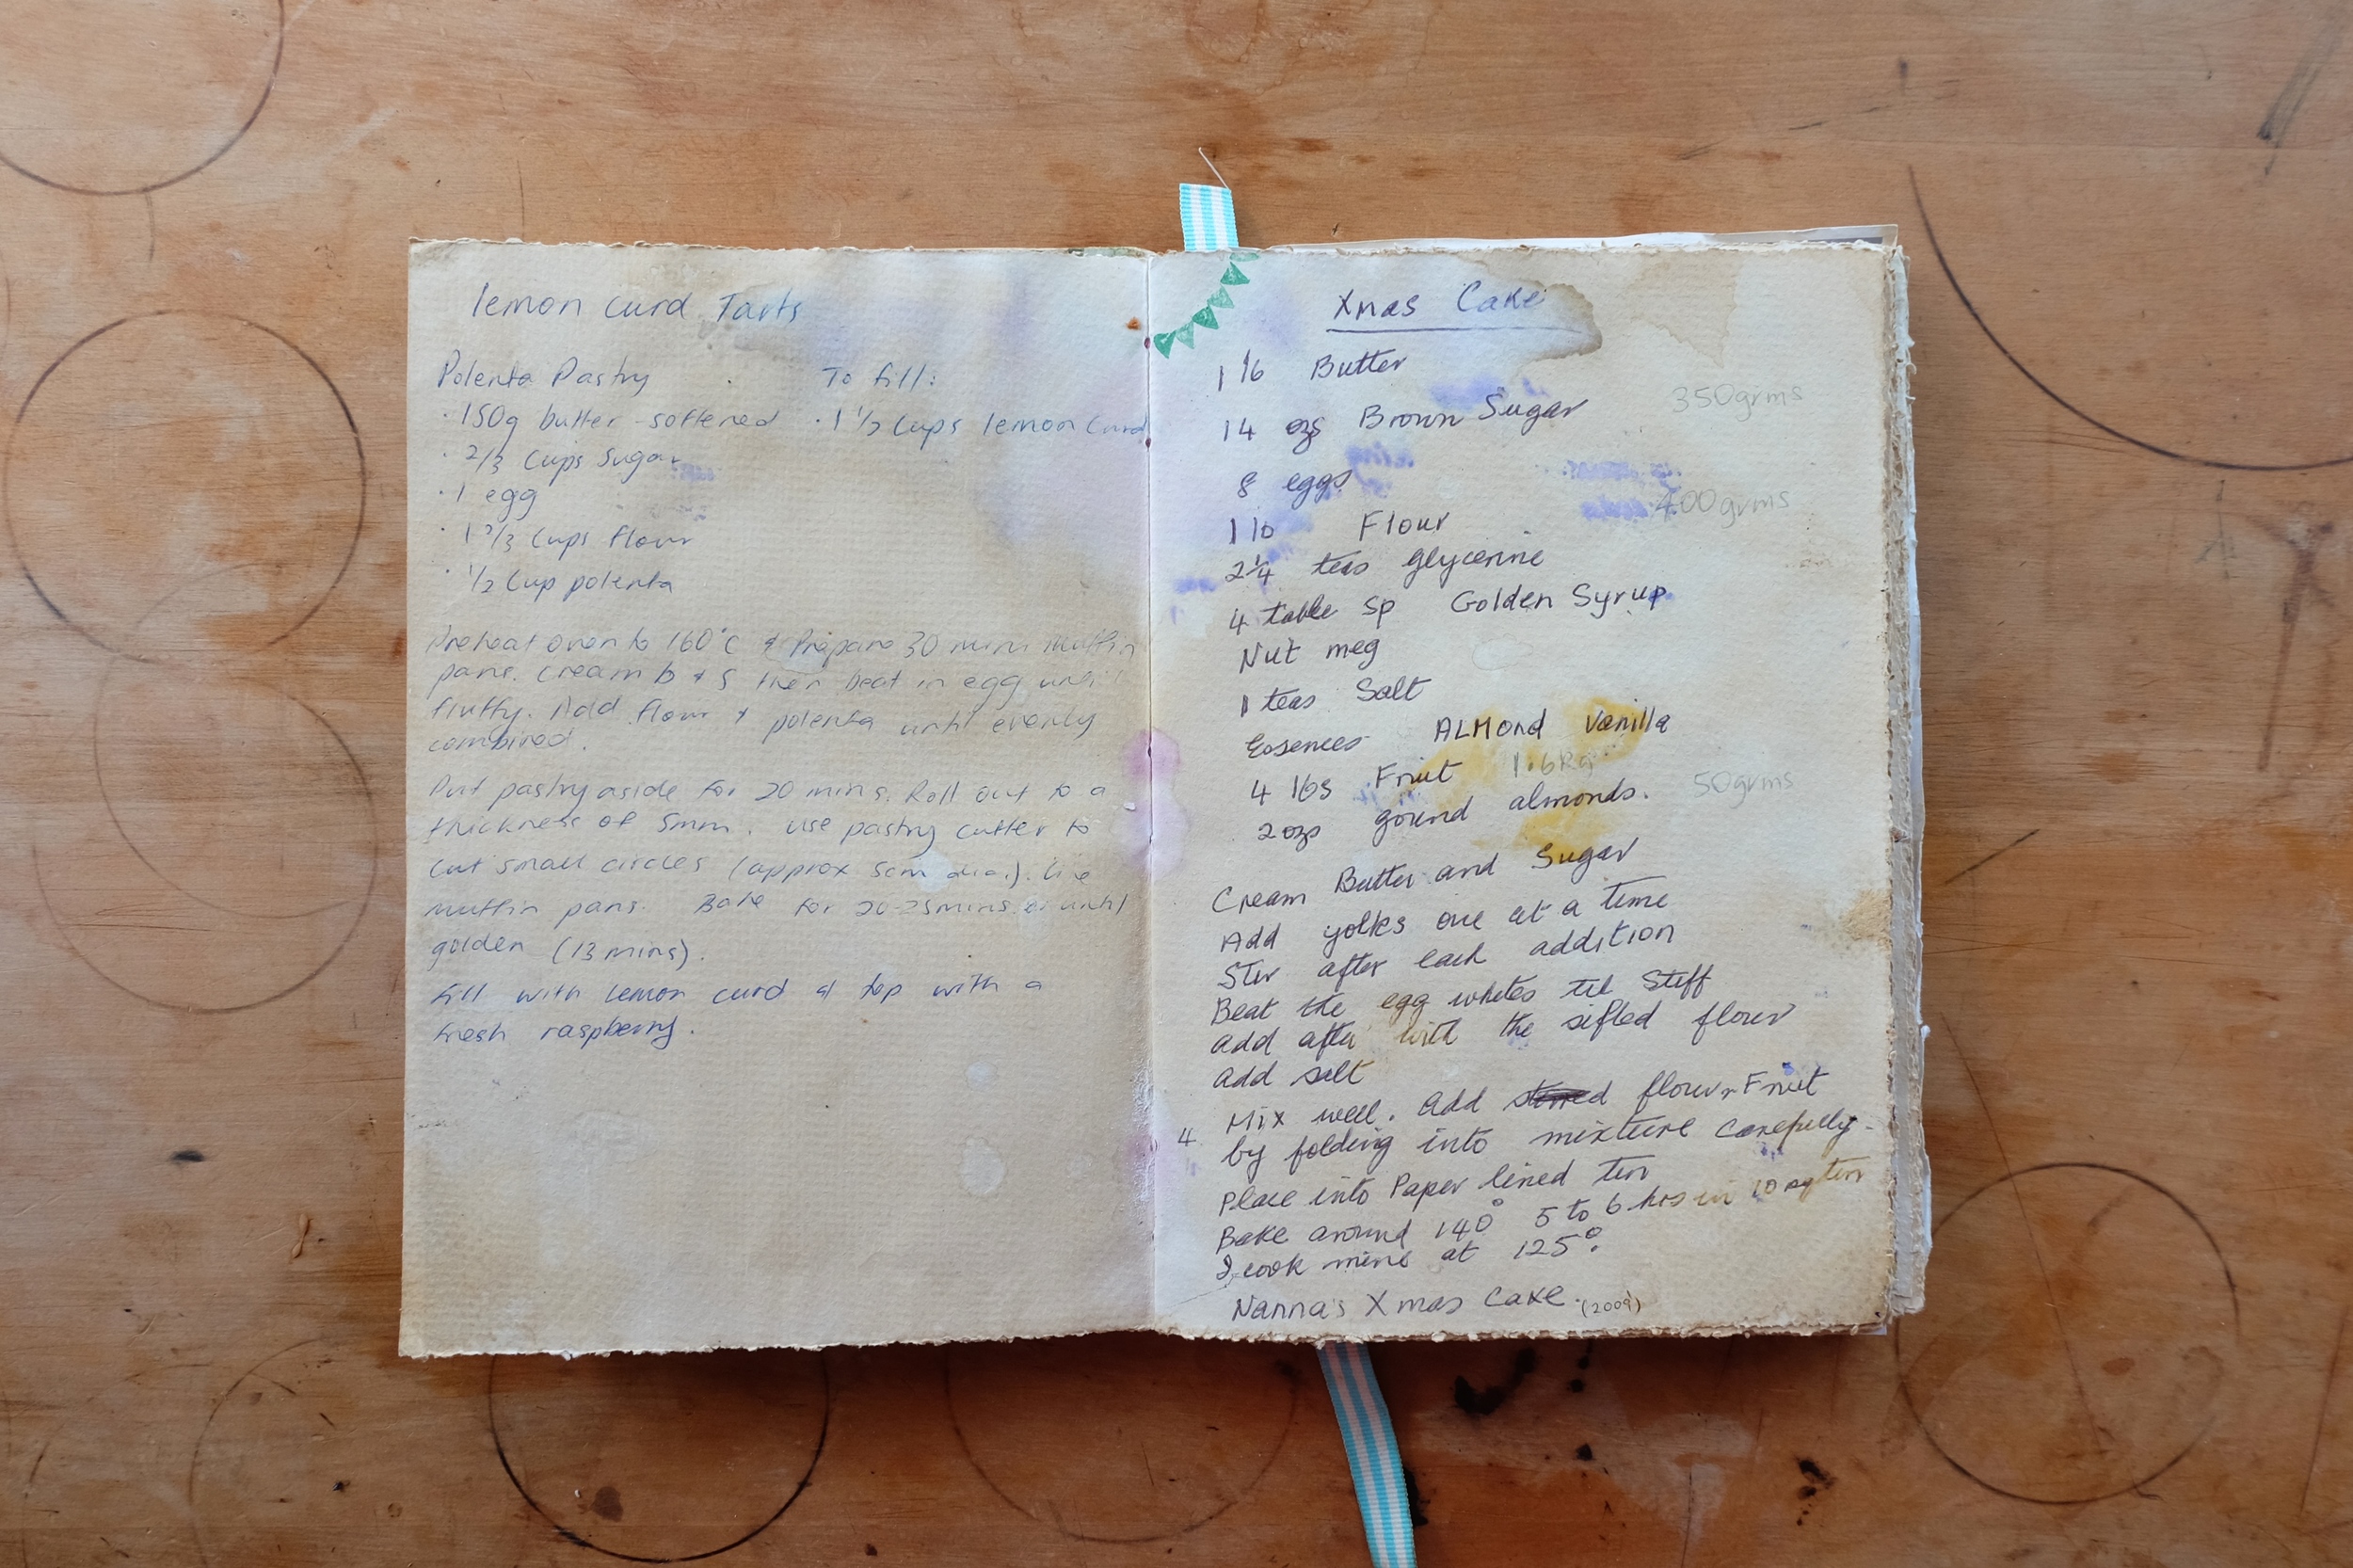 lemon curd Tarts
Polenta Pastry
· 150g butter - softened
· 2/3 cups sugar
· 1 egg
· 1 2/3 cups flour
· 1/2 cup polenta
To fill:
· 1 1/2 cups lemon curd
Preheat oven to 160°C & Prepare 30 mini muffin
pans. Cream b & s then beat in egg until
fluffy. Add flour & polenta until evenly
combined.
Put pastry aside for 20 mins. Roll out to a
thickness of 5mm. use pastry cutter to
cut small circles (approx 5cm dia.). Line
muffin pans. Bake for 20-25mins or until
golden (13 mins).
fill with lemon curd & top with a
fresh raspberry.
Xmas Cake
1 lb Butter
14 ozs Brown Sugar 350grms
8 eggs
1 lb Flour 400grms
2 1/4 teas glycerine
4 table sp Golden Syrup
Nut meg
1 teas Salt
Essences ALMOnd Vanilla
4 lbs Fruit 1.6Kg
2 ozs gound almonds. 50grms
Cream Butter and Sugar
Add yolks one at a time
Stir after each addition
Beat the egg whites til Stiff
add after with the sifted flour
add salt
Mix well. add flour & Fruit
4 by folding into mixture carefully.
Place into Paper lined tin
Bake around 140° 5 to 6 hrs in 10 sq tin
I cook mine at 125°.
Nanna's Xmas Cake. (2009)